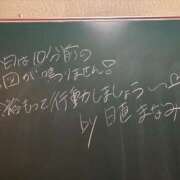 日は10分前の
図が鳴りません?
裕もって行動しましょう〜♡
by 日直 まなみ